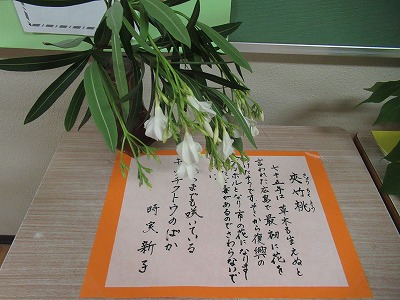 夾竹桃
きょうちくとう
七十五年は草木も生えぬと
言われた広島で最初に花を
から復興の
ボルとなり市の花になりまし
毒があるのでさわらないで
も咲いている
キョウチクトウのばか
時実新子